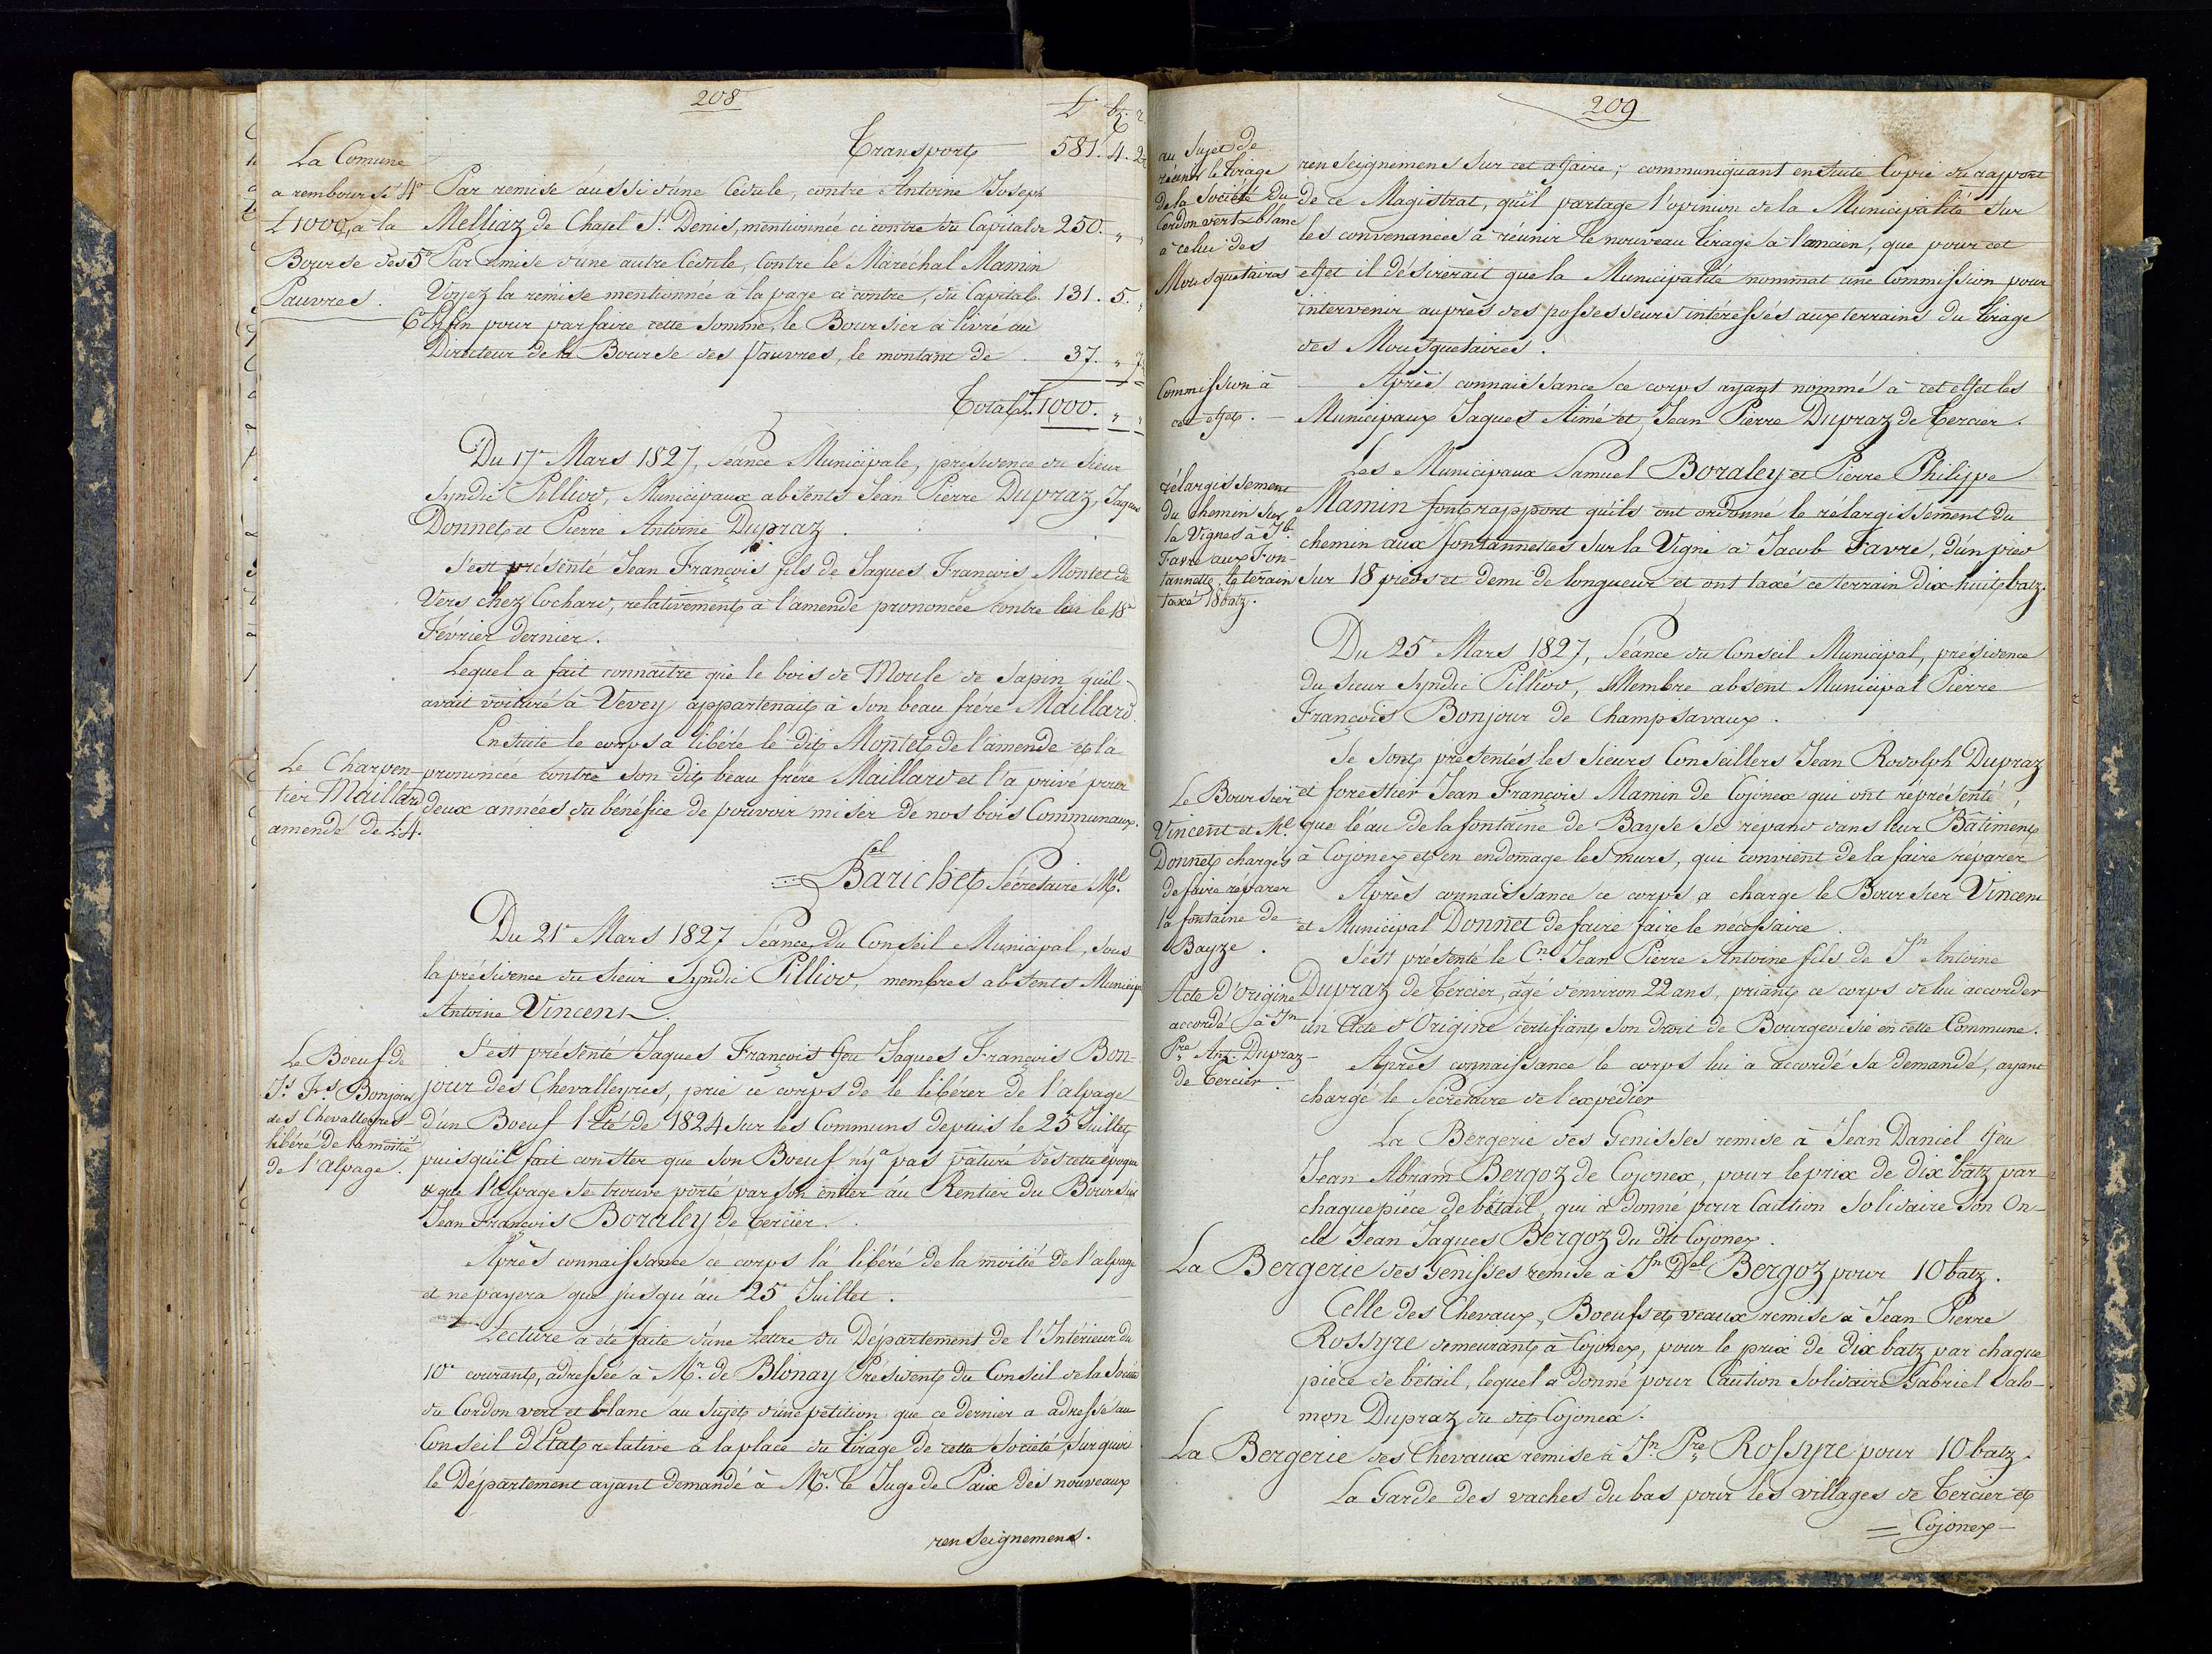 208
L. bz. r.
Transport 581. 4. 2
La Comune
a remboursé
L 1000, à la
Bourse des
Pauvres.
4º Par remise aussi d'une Cédule, contre Antoine Joseph
Melliaz de Chatel St. Denis, mentionnée ci contre du Capital de 250. " "
5º Par remise d'une autre Cédule, contre le Maréchal Mamin
Voyez la remise mentionnée à la page ci contre, du Capital. 131. 5. "
6º Enfin pour parfaire cette somme, le Boursier a livré au
Directeur de la Bourse des Pauvres, le montant de . 37. " 7
Total L 1000. " "
Du 17e Mars 1827, Séance Municipale, présidence du Sieur
Syndic Pilliod, Municipaux absents Jean Pierre Dupraz, Jaques
Donnet et Pierre Antoine Dupraz .
S'est présenté Jean François fils de Jaques François Montet de
Vers chez Cochard, relativement à l'amende prononcée contre lui le 18e
Février dernier.
Lequel a fait connaitre que le bois de Moule de sapin qu'il
avait voituré à Vevey appartenait à son beau frère Maillard.
Ensuite le corps a libéré le dit Montet de l'amende et l'a
prononcée contre son dit beau frère Maillard et l'a privé pour
deux années du bénéfice de pouvoir miser de nos bois Communaux.
Le Charpen-
tier Maillard
amendé de L.4.
Barichet Sécretaire Ml.
Du 21e Mars 1827 Séance du Conseil Municipal, sous
la présidence du Sieur Syndic Pilliod, membres absents Municipl
Antoine Vincent .
Le Boeuf de
Js. Fs. Bonjour
des Chevalleyres
libéré de la moitié
de l'alpage .
S'est présenté Jaques François ffeu Jaques François Bon-
jour des Chevalleyres, prié ce corps de le libérer de l'alpage
d'un Boeuf l'Eté de 1824 sur les Communs depuis le 25 Juillet
puisqu'il fait conster que son Boeuf n'y a pas pâturé dès cette époque
& que l'alpage se trouve porté par son entier au Rentier du Boursier
Jean François Boraley de Tercier.
Après connaissance ce corps l'a libéré de la moitié de l'alpage
et ne payera que jusqu'au 25e Juillet .
Lecture a été faite d'une Lettre du Département de l'Intérieur du
10e courant, adressée à Mr. de Blonay Président du Conseil de la Société
du Cordon vert et blanc au sujet d'une pétition que ce dernier a adressé au
Conseil d'Etat relative à la place du tirage de cette Société, sur quoi
le Département ayant demandé à Mr. le Juge de Paix des nouveaux
renseignemens.
209
au sujet de
réunir le tirage
de la Société du
Cordon vert & blanc
à celui des
Mousquetaires
renseignemens sur cet affaire ; communiquant ensuite Copie du rapport
de ce Magistrat, qu'il partage l'opinion de la Municipalité sur
les convenances à réunir le nouveau tirage à l'ancien, que pour cet
effet il désirerait que la Municipalité nommat une Commission pour
intervenir auprès des possesseurs intéressés aux terrains du tirage
des Mousquetaires .
Commission à
cet effet .
Après connaissance ce corps ayant nommé à cet effet les
Municipaux Jaques Aimé et Jean Pierre Dupraz de Tercier .
rélargissement
du chemin sur
la Vigne à Jb.
Favre aux Fon-
tannettes, le terain
taxé 18 batz.
Les Municipaux Samuel Boraley et Pierre Philippe
Mamin font rapport qu'ils ont ordonné le rélargissement du
chemin aux fontannettes sur la Vigne à Jacob Favre, d'un pied
sur 18 pieds et demi de longueur et ont taxé ce terrain dix huit batz.
Du 25e Mars 1827, Séance du Conseil Municipal, présidence
du Sieur Syndic Pilliod, Membre absent Municipal Pierre
François Bonjour de Champsavaux .
Se sont présentés les Sieurs Conseillers Jean Rodolph Dupraz
et forestier Jean François Mamin de Cojonex qui ont représenté,
que l'eau de la fontaine de Bayse se répand dans leur Bâtiment
à Cojonex et en endomage les murs, qui convient de la faire réparer
Le Boursier
Vincent et Ml.
Donnet chargés
de faire réparer
la fontaine de
Bayze .
Après connaissance ce corps a chargé le Boursier Vincent
et Municipal Donnet de faire faire le necessaire .
S'est présenté le Cn. Jean Pierre Antoine fils de Jn Antoine
Dupraz de Tercier, âgé d'environ 22 ans, priant ce corps de lui accorder
un Acte d'Origine certifiant son droit de Bourgeoisie en cette Commune.
Acte D'origine
accordé à Jn
Pre Ant. Dupraz
de Tercier .
Après connaissance le corps lui a accordé sa demande, ayant
chargé le Sécretaire de l'expédier
La Bergerie des Genisses remise à Jean Daniel ffeu
Jean Abram Bergoz de Cojonex, pour le prix de dix batz par
chaque pièce de bétail, qui a donné pour Caution solidaire son On-
cle Jean Jaques Bergoz du dit Cojonex .
La Bergerie des Genisses remise à Jn Del Bergoz pour 10 batz .
Celle des Chevaux, Boeufs et veaux remise à Jean Pierre
Rossyre demeurant à Cojonex, pour le prix de dix batz par chaque
pièce de bétail, lequel a donné pour Caution Solidaire Gabriel Salo-
mon Dupraz du dit Cojonex .
La Bergerie des Chevaux remise à Jn. Pre Rossyre pour 10 batz .
La Garde des vaches du bas pour les villages de Tercier et
Cojonex